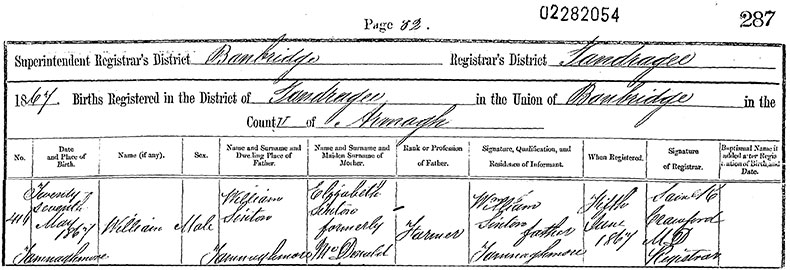 Page 52.
02282054
287
Superintendent Registrar's District Banbridge Registrar's District Tandragee
1867. Births Registered in the District of Tandragee in the Union of Banbridge in the
County of Armagh
No. Date and Place of Birth. Name (if any). Sex. Name and Surname and Dwelling Place of Father. Name and Surname and Maiden Surname of Mother. Rank or Profession of Father. Signature, Qualification, and Residence of Informant. When Registered. Signature of Registrar. Baptismal Name if added after Registration of Birth, and Date.
Twenty
seventh
May
1867
Tamnaghmore
William
Male
William
Sinton
Tamnaghmore
Elizabeth
Sinton
formerly
McDonald
Farmer
William
Sinton
father
Tamnaghmore
Fifth
June
1867
Crawford
MD
Registrar